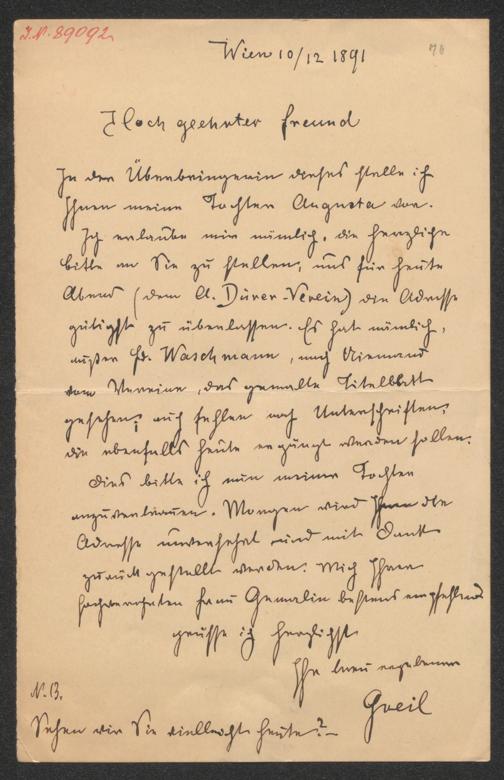 I.N. 89092
Wien 10/12 1891
Hochgeehrter Freund
In der Überbringerin dieses stelle ich
Ihnen meine Tochter Augusta vor.
Ich erlaube mir nämlich, die herzliche
bitte an Sie zu stellen, uns für heute
Abend (dem A. Dürer-Verein) die Adresse
gütigst zu überlassen. Es hat nämlich,
außer Fr. Waschmann, noch Niemand
vom Vereine, das gemalte Titelblatt
gesehen; auch fehlen noch Unterschriften,
die ebenfalls heute ergänzt werden sollen.
Dies bitte ich nun meiner Tochter
anzuvertrauen. Morgen wird Ihnen die
Adresse unversehrt und mit Dank
zurückgestellt werden. Mich Ihrer
hochverehrten Frau Gemalin bestens empfehlend
grüsse ich herzlichst
Ihr treu ergebener
Greil
N.B.
Sehen wir Sie vielleicht heute?